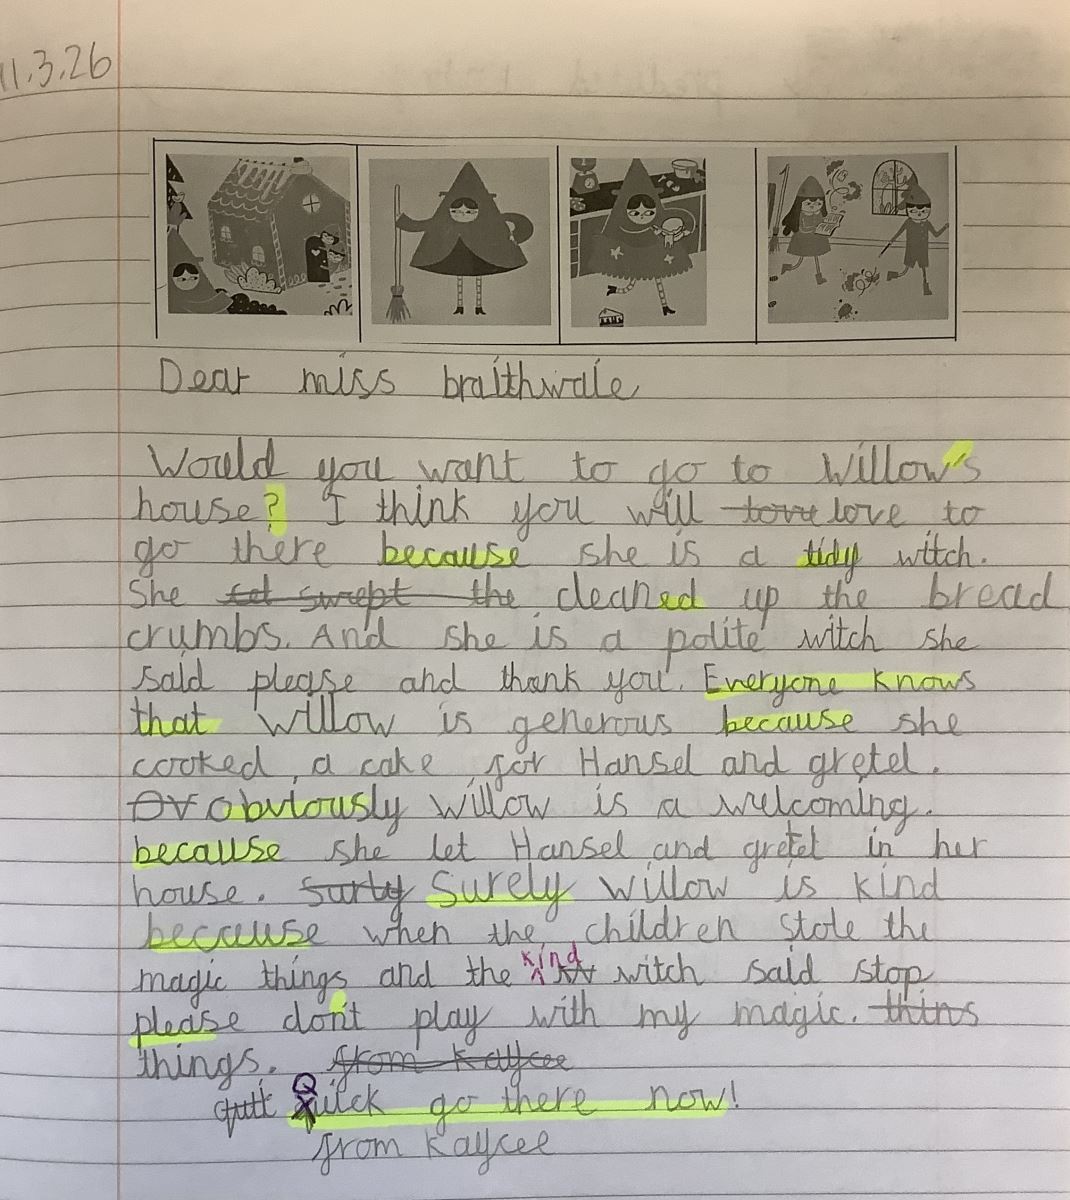 11.3.26
Dear miss braithwale
Would you want to go to Willow's
house? I think you will tove love to
go there because she is a tidy witch.
She swept the cleaned up the bread
crumbs. And she is a polite witch she
said please and thank you. Everyone knows
that willow is generous because she
cooked a cake for Hansel and gretel.
Ov obviously willow is a welcoming.
because she let Hansel and gretel in her
house. Surly Surely willow is kind
because when the children stole the
magic things and the kind witch said stop
please don't play with my magic. thins
things. from Kaycee
Quick go there now!
from Kaycee